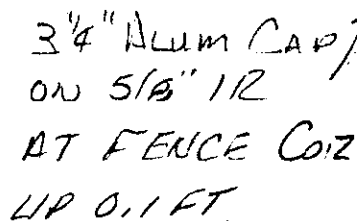 3¼" ALUM CAP
ON 5/8" IR
AT FENCE COR
UP 0.1 FT